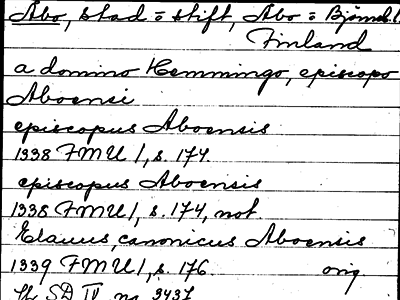 Åbo, stad o stift, Åbo o Björneb. l.
Finland
a domino Hemmingo, episcopo
Aboensi
episcopus Aboensis
1338 FMU 1, s. 174
episcopus Aboensis
1338 FMU 1, s. 174, not
Elauus, canonicus Aboensis
1339 FMU 1, s. 176. orig
SD IV no 3437